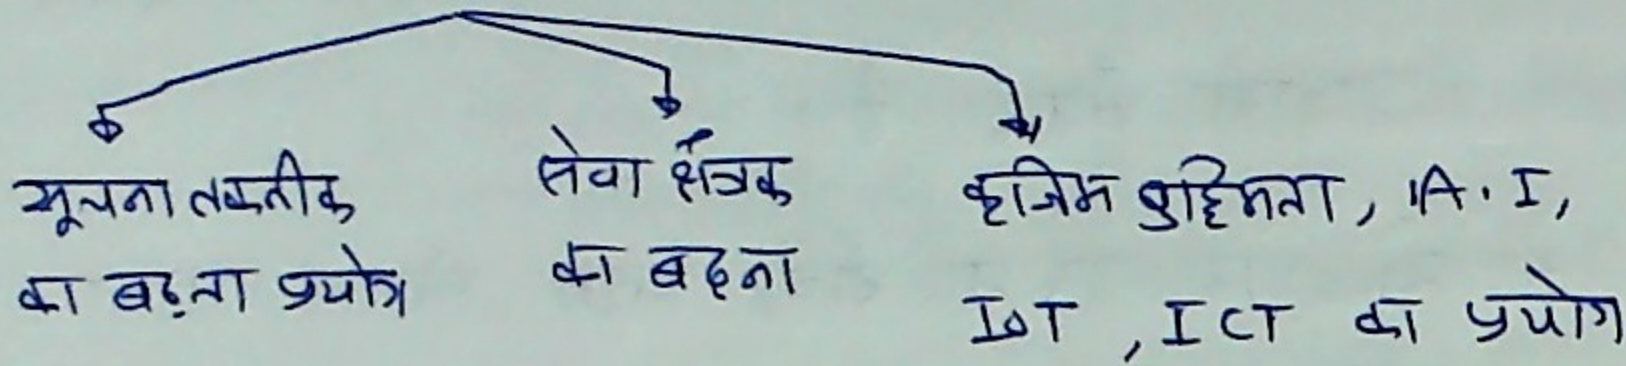 सूचना तकनीक
का बढ़ता प्रयोग
सेवा क्षेत्रक
का बढ़ना
कृत्रिम बुद्धिमता, A.I,
IOT, ICT का प्रयोग